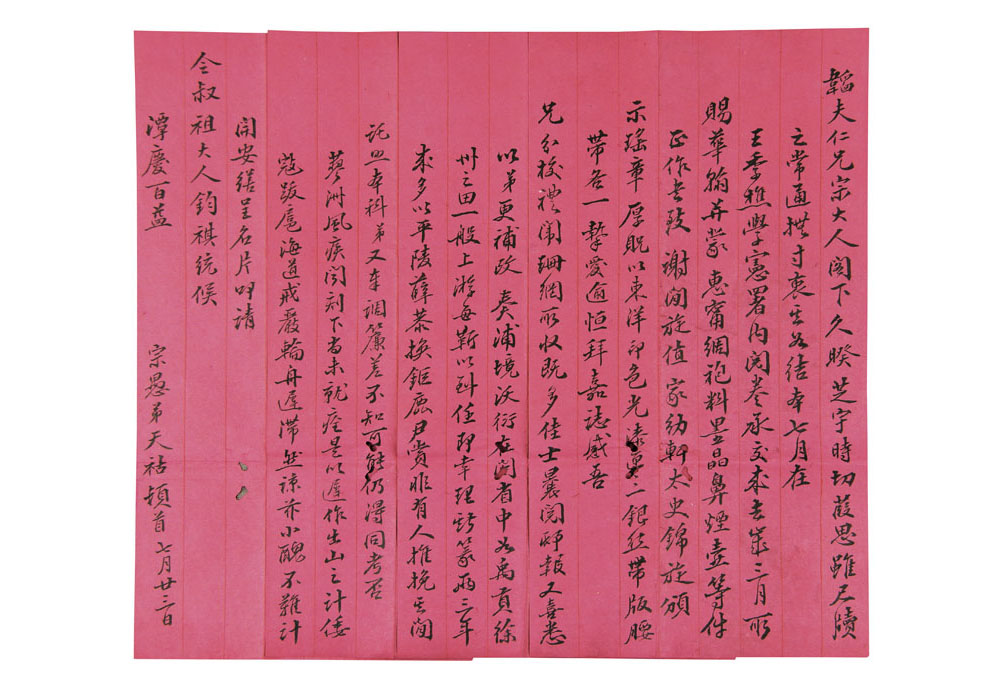 韜夫仁兄宗大人閣下久暌芝宇時切葭思雖尺牘
之常通拱寸衷其如結本七月在
王季樵學憲署內閱卷承交來去歲三月所
賜華翰并蒙惠甯綢袍料墨晶鼻煙壺等件
正作書致謝間旋值家幼軒太史錦旋頒
示瑤章厚貺以東洋印色光漆 二銀絲帶版腰
帶各一摯愛逾恒拜嘉誌感吾
兄分校禮闈珊網所收既多佳士曩閱邸報又喜悉
以第更補政 奏浦境沃衍在閩省中如禹貢徐
州之田一般上游每靳以到任即幸理斯篆兩三年
來多以平陵薛恭換鉅鹿尹賞非有人推挽其間
詫并本科弟又奉調簾差不知可能仍得同考否
藜洲風疾聞刻下尚未就痊是以遲作出山之計倭
寇跋扈海道戒嚴輪舟遲滯然諒亦小醜不難計
開安繕呈名片叩請
令叔祖大人鈞祺統候
潭慶百益
宗愚弟天祜頓首七月廿三日